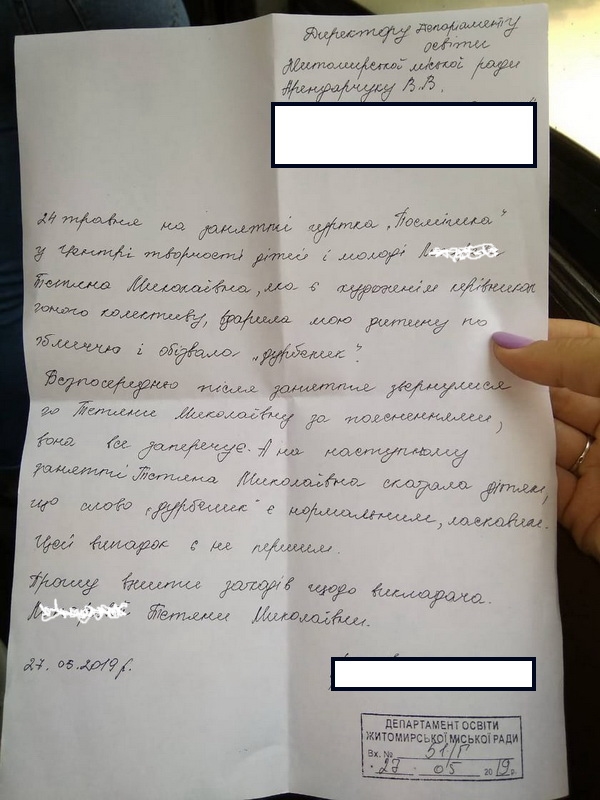 Директору Департаменту
освіти
Житомирської міської ради
Арендарчуку В.В.
24 травня на занятті гуртка „Посмішка"
у Центрі творчості дітей і молоді
Тетяна Миколаївна, яка є художнім керівником
даного колективу, вдарила мою дитину по
обличчю і обізвала „дурбелик".
Безпосередньо після заняття звернулися
до Тетяни Миколаївну за поясненнями,
вона все заперечує. А на наступному
занятті Тетяна Миколаївна сказала дітям,
що слово „дурбелик" є нормальним, ласкавим.
Цей випадок є не першим.
Прошу вжити заходів щодо викладача
Тетяни Миколаївни.
27.05.2019р.
ДЕПАРТАМЕНТ ОСВІТИ
ЖИТОМИРСЬКОЇ МІСЬКОЇ РАДИ
Вх. № 51/Г
"27" 05 2019р.